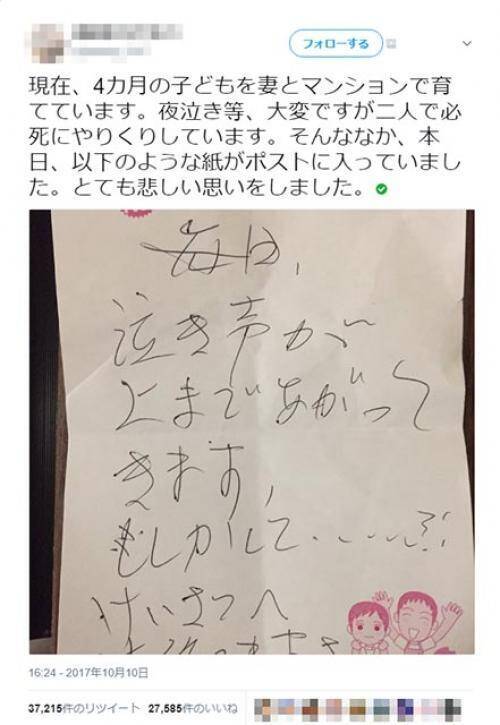 フォローする
現在、4カ月の子どもを妻とマンションで育
てています。夜泣き等、大変ですが二人で必
死にやりくりしています。そんななか、本
日、以下のような紙がポストに入っていまし
た。とても悲しい思いをしました。
毎日、
泣き声が
上まであがって
きます、
もしかして、
けいさつへ
16:24 - 2017年10月10日
37,215件のリツイート 27,585件のいいね